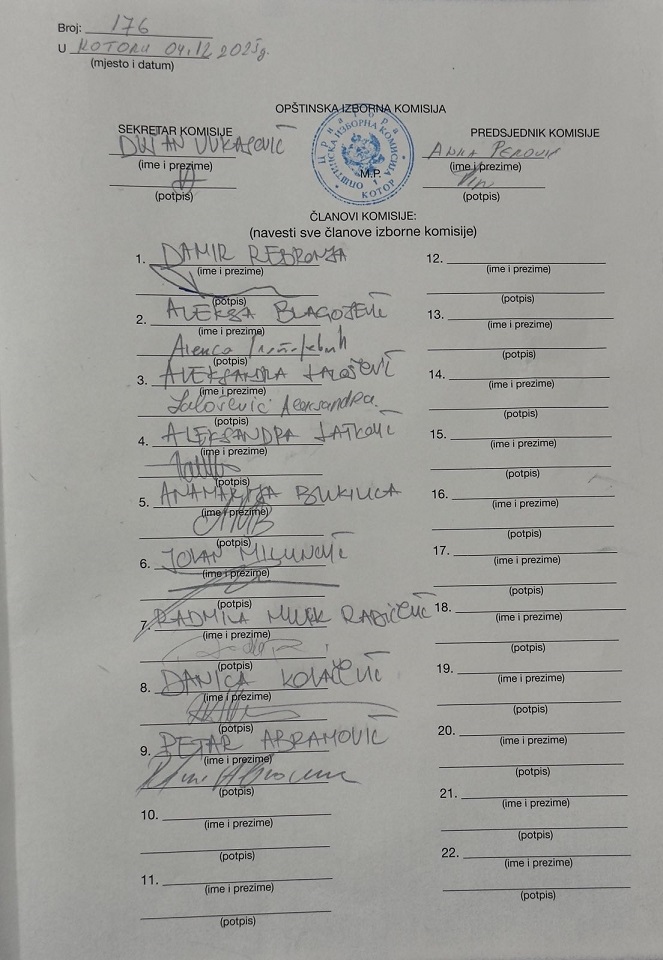 Broj: 176
U KOTORU 04.12.2025g.
(mjesto i datum)
OPŠTINSKA IZBORNA KOMISIJA
SEKRETAR KOMISIJE
PREDSJEDNIK KOMISIJE
DUŠAN VUKASOVIĆ
(ime i prezime)
(potpis)
Црна Гора
ОПШТИНСКА ИЗБОРНА КОМИСИЈА
КОТОР
M.P.
ANKA PEROVIĆ
(ime i prezime)
(potpis)
ČLANOVI KOMISIJE:
(navesti sve članove izborne komisije)
1. DAMIR REBRONJA
(ime i prezime)
(potpis)
2. ALEKSA BLAGOJEVIĆ
(ime i prezime)
(potpis)
3. ALEKSANDRA LALOŠEVIĆ
(ime i prezime)
Lalošević Aleksandra
(potpis)
4. ALEKSANDRA JATKOVIĆ
(ime i prezime)
(potpis)
5. ANAMARIJA BUKILICA
(ime i prezime)
(potpis)
6. JOVAN MILUNOVIĆ
(ime i prezime)
(potpis)
7. RADMILA RADIČEVIĆ
(ime i prezime)
(potpis)
8. DANICA KOVAČEVIĆ
(ime i prezime)
(potpis)
9. PETAR ABRAMOVIĆ
(ime i prezime)
(potpis)
10.
(ime i prezime)
(potpis)
11.
(ime i prezime)
(potpis)
12.
(ime i prezime)
(potpis)
13.
(ime i prezime)
(potpis)
14.
(ime i prezime)
(potpis)
15.
(ime i prezime)
(potpis)
16.
(ime i prezime)
(potpis)
17.
(ime i prezime)
(potpis)
18.
(ime i prezime)
(potpis)
19.
(ime i prezime)
(potpis)
20.
(ime i prezime)
(potpis)
21.
(ime i prezime)
(potpis)
22.
(ime i prezime)
(potpis)